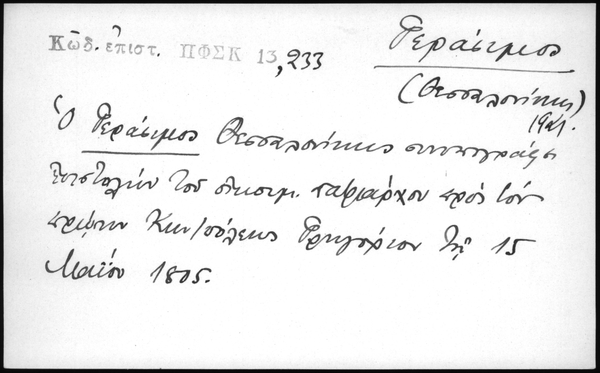 Κῶδ. ἐπιστ. ΠΦΣΚ 13, 233
Γεράσιμος
(Θεσσαλονίκης)
Ὁ Γεράσιμος Θεσσαλονίκης συνυπογράφει
ἐπιστολὴν τοῦ οἰκουμ. πατριάρχου πρὸς τὸν
πρώην Κων/πόλεως Γρηγόριον τῇ 15
Μαΐου 1805.